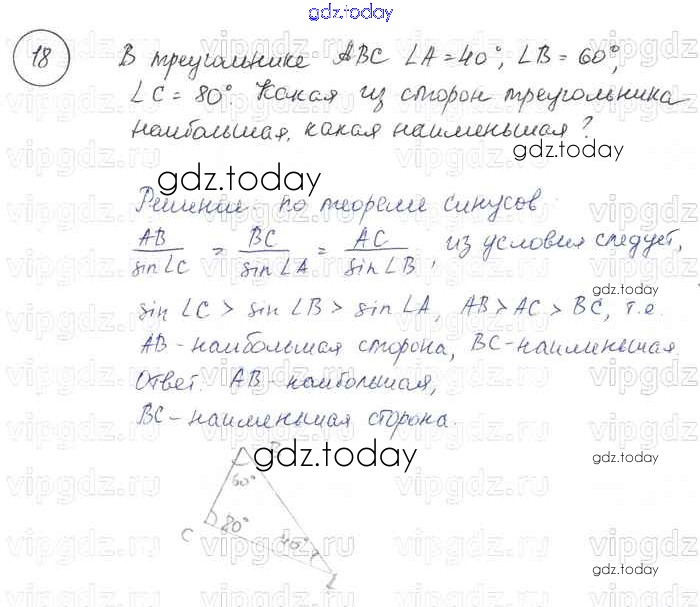 gdz.today
18 В треугольнике ABC ∠A = 40°, ∠B = 60°,
∠C = 80°. Какая из сторон треугольника
наибольшая, какая наименьшая?
gdz.today
gdz.today
Решение по теореме синусов
AB/sin∠C = BC/sin∠A = AC/sin∠B, из условия следует,
gdz.today
sin∠C > sin∠B > sin∠A, AB > AC > BC, т.е.
AB - наибольшая сторона, BC - наименьшая
Ответ: AB - наибольшая,
gdz.today
BC - наименьшая сторона.
gdz.today
gdz.today
60°
C 80° 40°
gdz.today
vipgdz.ru